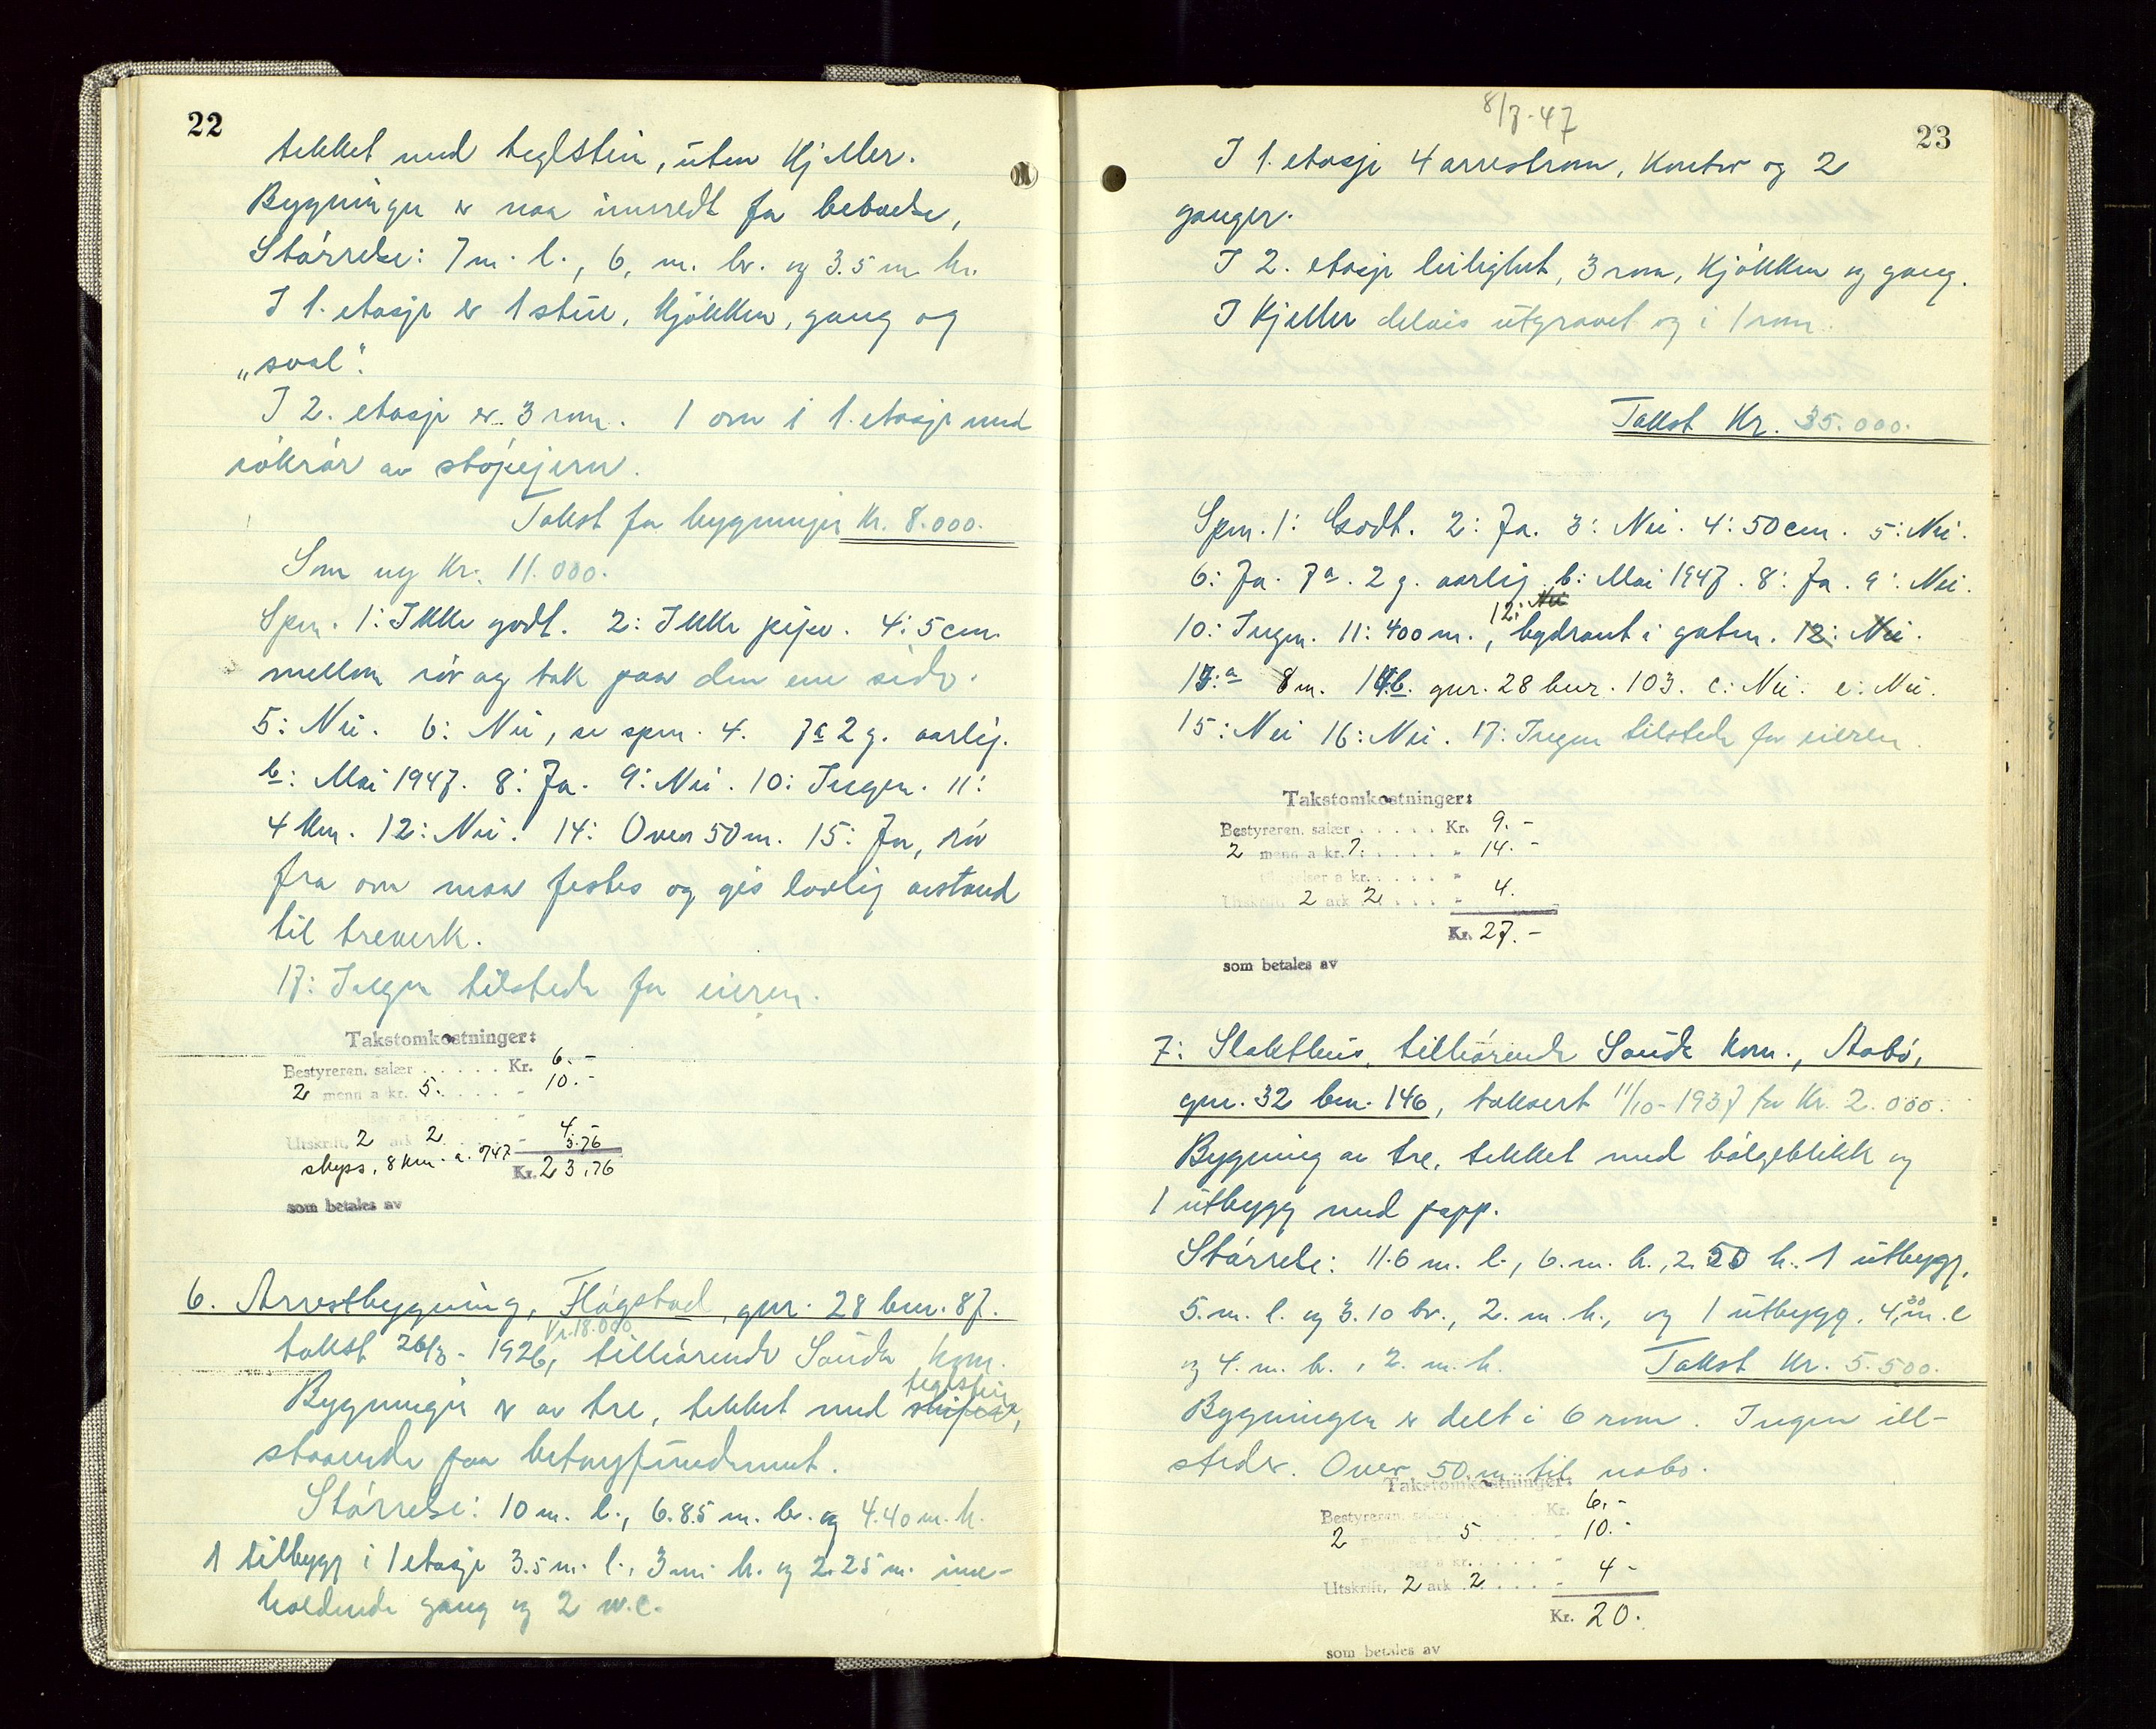 22
tekket med teglstein, uten kjeller.
Bygningen er naa innredt for beboelse,
Størrelse: 7 m. l., 6, m. br. og 3.5 m h.
I 1. etasje er 1 stue, kjøkken, gang og
„sval".
I 2. etasje er 3 rom. 1 ovn i 1. etasje med
rökrör av stöpejern.
Takst for bygningen Kr. 8.000.
Som ny Kr. 11.000.
Spm. 1: Ikke godt. 2: Ikke pipe. 4: 5 cm.
mellom rör og tak paa den ene side.
5: Nei. 6: Nei, se spm. 4. 7a 2 g. aarlig.
b: Mai 1947. 8: Ja. 9: Nei. 10: Ingen. 11:
4 km. 12: Nei. 14: Over 50 m. 15: Ja, rör
fra ovn maa festes og gis lovlig avstand
til treverk.
17: Ingen tilstede for eieren.
Takstomkostninger:
Bestyreren, salær . . . . . Kr. 6.-
2 menn a kr. 5. . . . . - 10.-
Utskrift, 2 ark 2 . . . - 4.-
skyss, 8 km. a. 747 3.76
Kr. 23,76
som betales av
6. Arrestbygning, Fløgstad, gnr. 28 bnr. 87.
takst 26/3 - 1926, Kr. 18.000 tilhörende Sauda kom.
Bygningen er av tre, tekket med teglstein,
staaende paa betongfundament.
Størrelse: 10 m. l., 6.85 m. br. og 4.40 m. h.
1 tilbygg i 1 etasje 3.5 m. l., 3 m. b. og 2.25 m. inne-
holdende gang og 2 w.c.
8/7-47
23
I 1. etasje 4 arrestrom, kontor og 2
ganger.
I 2. etasje leilighet, 3 rom, kjøkken og gang.
I kjeller delvis utgravet og i 1 rom.
Takst Kr. 35.000.
Spm. 1: Godt. 2: Ja. 3: Nei. 4: 50 cm. 5: Nei.
6: Ja. 7a. 2 g. aarlig. b: Mai 1947. 8: Ja. 9: Nei.
10: Ingen. 11: 400 m., 12: Nei hydrant i gaten. 12: Nei.
14: a 8 m. 14b. gnr. 28 bnr. 103. c: Nei. e: Nei.
15: Nei 16: Nei. 17: Ingen tilstede for eieren.
Takstomkostninger:
Bestyreren, salær . . . . . Kr. 9.-
2 menn a kr. 7. . . . . „ 14.-
. . . . . ser a kr. . . . . „
Utskrift, 2 ark 2 . . . . - 4.
Kr. 27.-
som betales av
7: Slakthus, tilhørende Sauda kom., Aabö,
gnr. 32 bnr. 146, taksert 11/10-1937 for Kr. 2.000.
Bygning av tre, tekket med bølgeblikk og
1 utbygg med papp.
Størrelse: 11.6 m. l., 6. m. b., 2.50 h. 1 utbygg,
5. m. l. og 3.10 br., 2. m. h., og 1 utbygg, 4,30 m. l
og 4. m. b., 2. m. h. Takst Kr. 5.500.
Bygningen er delt i 6 rom. Ingen ill-
steder. Over 50 m til nabo.
Takstomkostninger:
Bestyreren, salær Kr. 6.-
2 menn a kr. 5 . . . . - 10.-
a kr. . . . . -
Utskrift, 2 ark 2 . . . . - 4-
Kr. 20.
som betales av